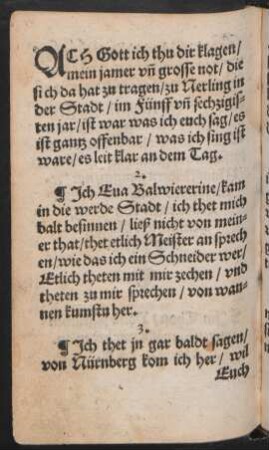 ACH Gott ich thu dir klagen/
mein jamer vñ grosse not/ die
si ch da hat zu tragen/ zu Nerling in
der Stadt/ im Fünff vñ sechzigis-
ten jar/ ist war was ich euch sag/ es
ist gantz offenbar/ was ich sing ist
ware/ es leit klar an dem Tag.
2.
¶ Ich Eua Balwiererine/ kam
in die werde Stadt/ ich thet mich
balt besinnen/ ließ nicht von mein-
er that/ thet etlich Meister an sprech
en/ wie das ich ein Schneider wer/
Etlich theten mit mir zechen/ vnd
theten zu mir sprechen/ von wan-
nen kumstu her.
3.
¶ Ich thet jn gar baldt sagen/
von Nürnberg kom ich her/ wil
Euch